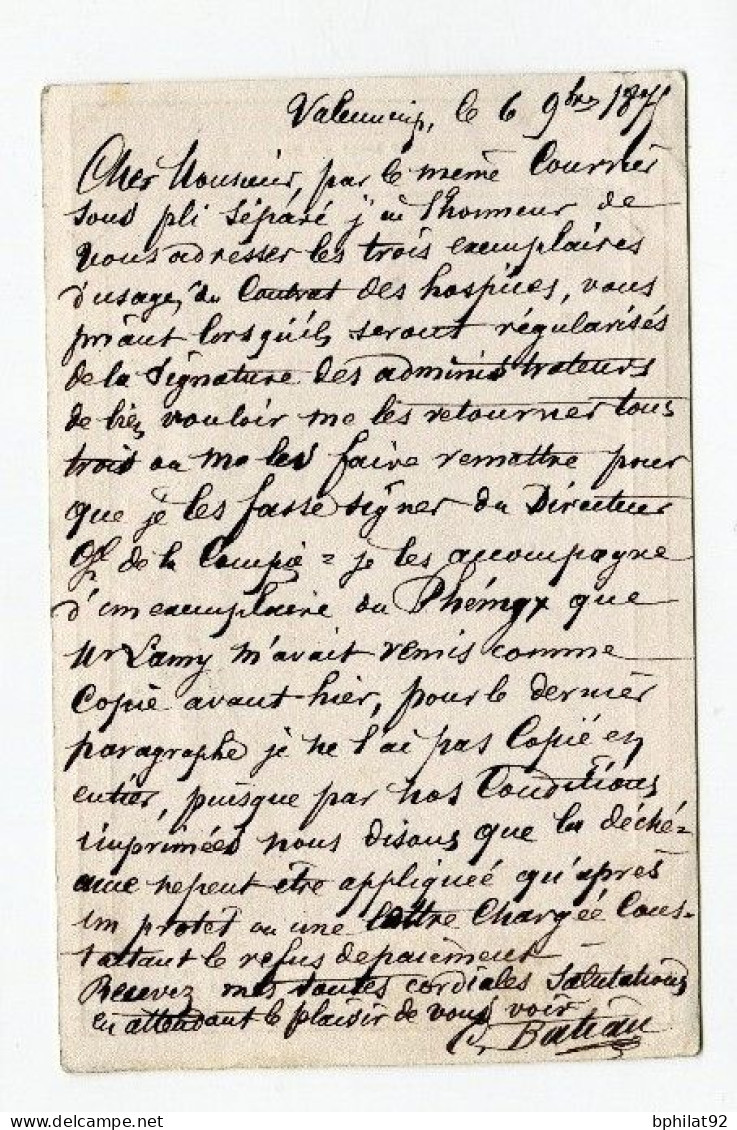 le 6 9bre 187
Cher Monsieur, par le même Courrier
sous pli séparé j'ai l'honneur de
vous adresser les trois exemplaires
d'usage, du Contrat des hospices, vous
priant lorsqu'ils seront régularisés
de la signature des administrateurs
de bien vouloir me les retourner tous
trois ou me les faire remettre pour
que je les fasse signer du Directeur
Gl de la Compie = je les accompagne
d'un exemplaire du Phényx que
Mr Lamy m'avait remis comme
Copie avant hier, pour le dernier
paragraphe je ne l'ai pas Copié en
entier, puisque par nos Conditions
imprimées nous disons que la déché=
ance ne peut être appliquée qu'après
un protêt ou une lettre Chargée Cons-
tatant le refus de paiement
Recevez mes toutes cordiales salutations
en attendant le plaisir de vous voir
bphilat92